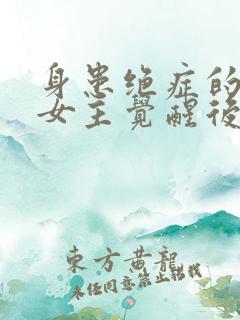 身患绝症的
女主觉醒後
東方黄龍
未经同意禁止转载